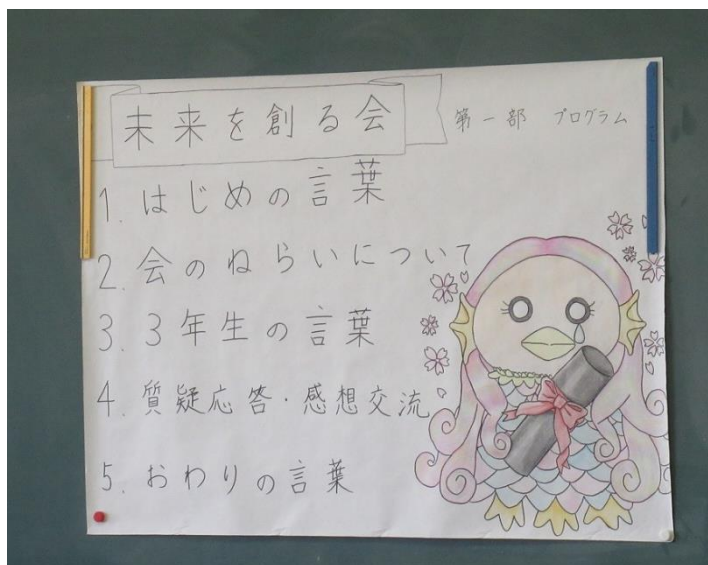 未来を創る会
第一部 プログラム
1. はじめの言葉
2. 会のねらいについて
3. 3年生の言葉
4. 質疑応答・感想交流
5. おわりの言葉